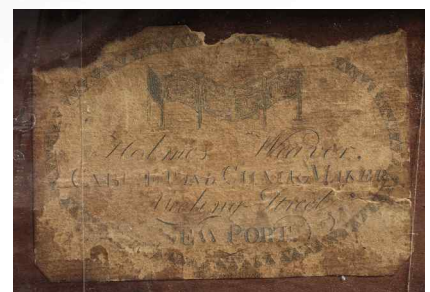 Holmes Weaver.
CABINET and CHAIR-MAKER
Meeting Street
NEW PORT